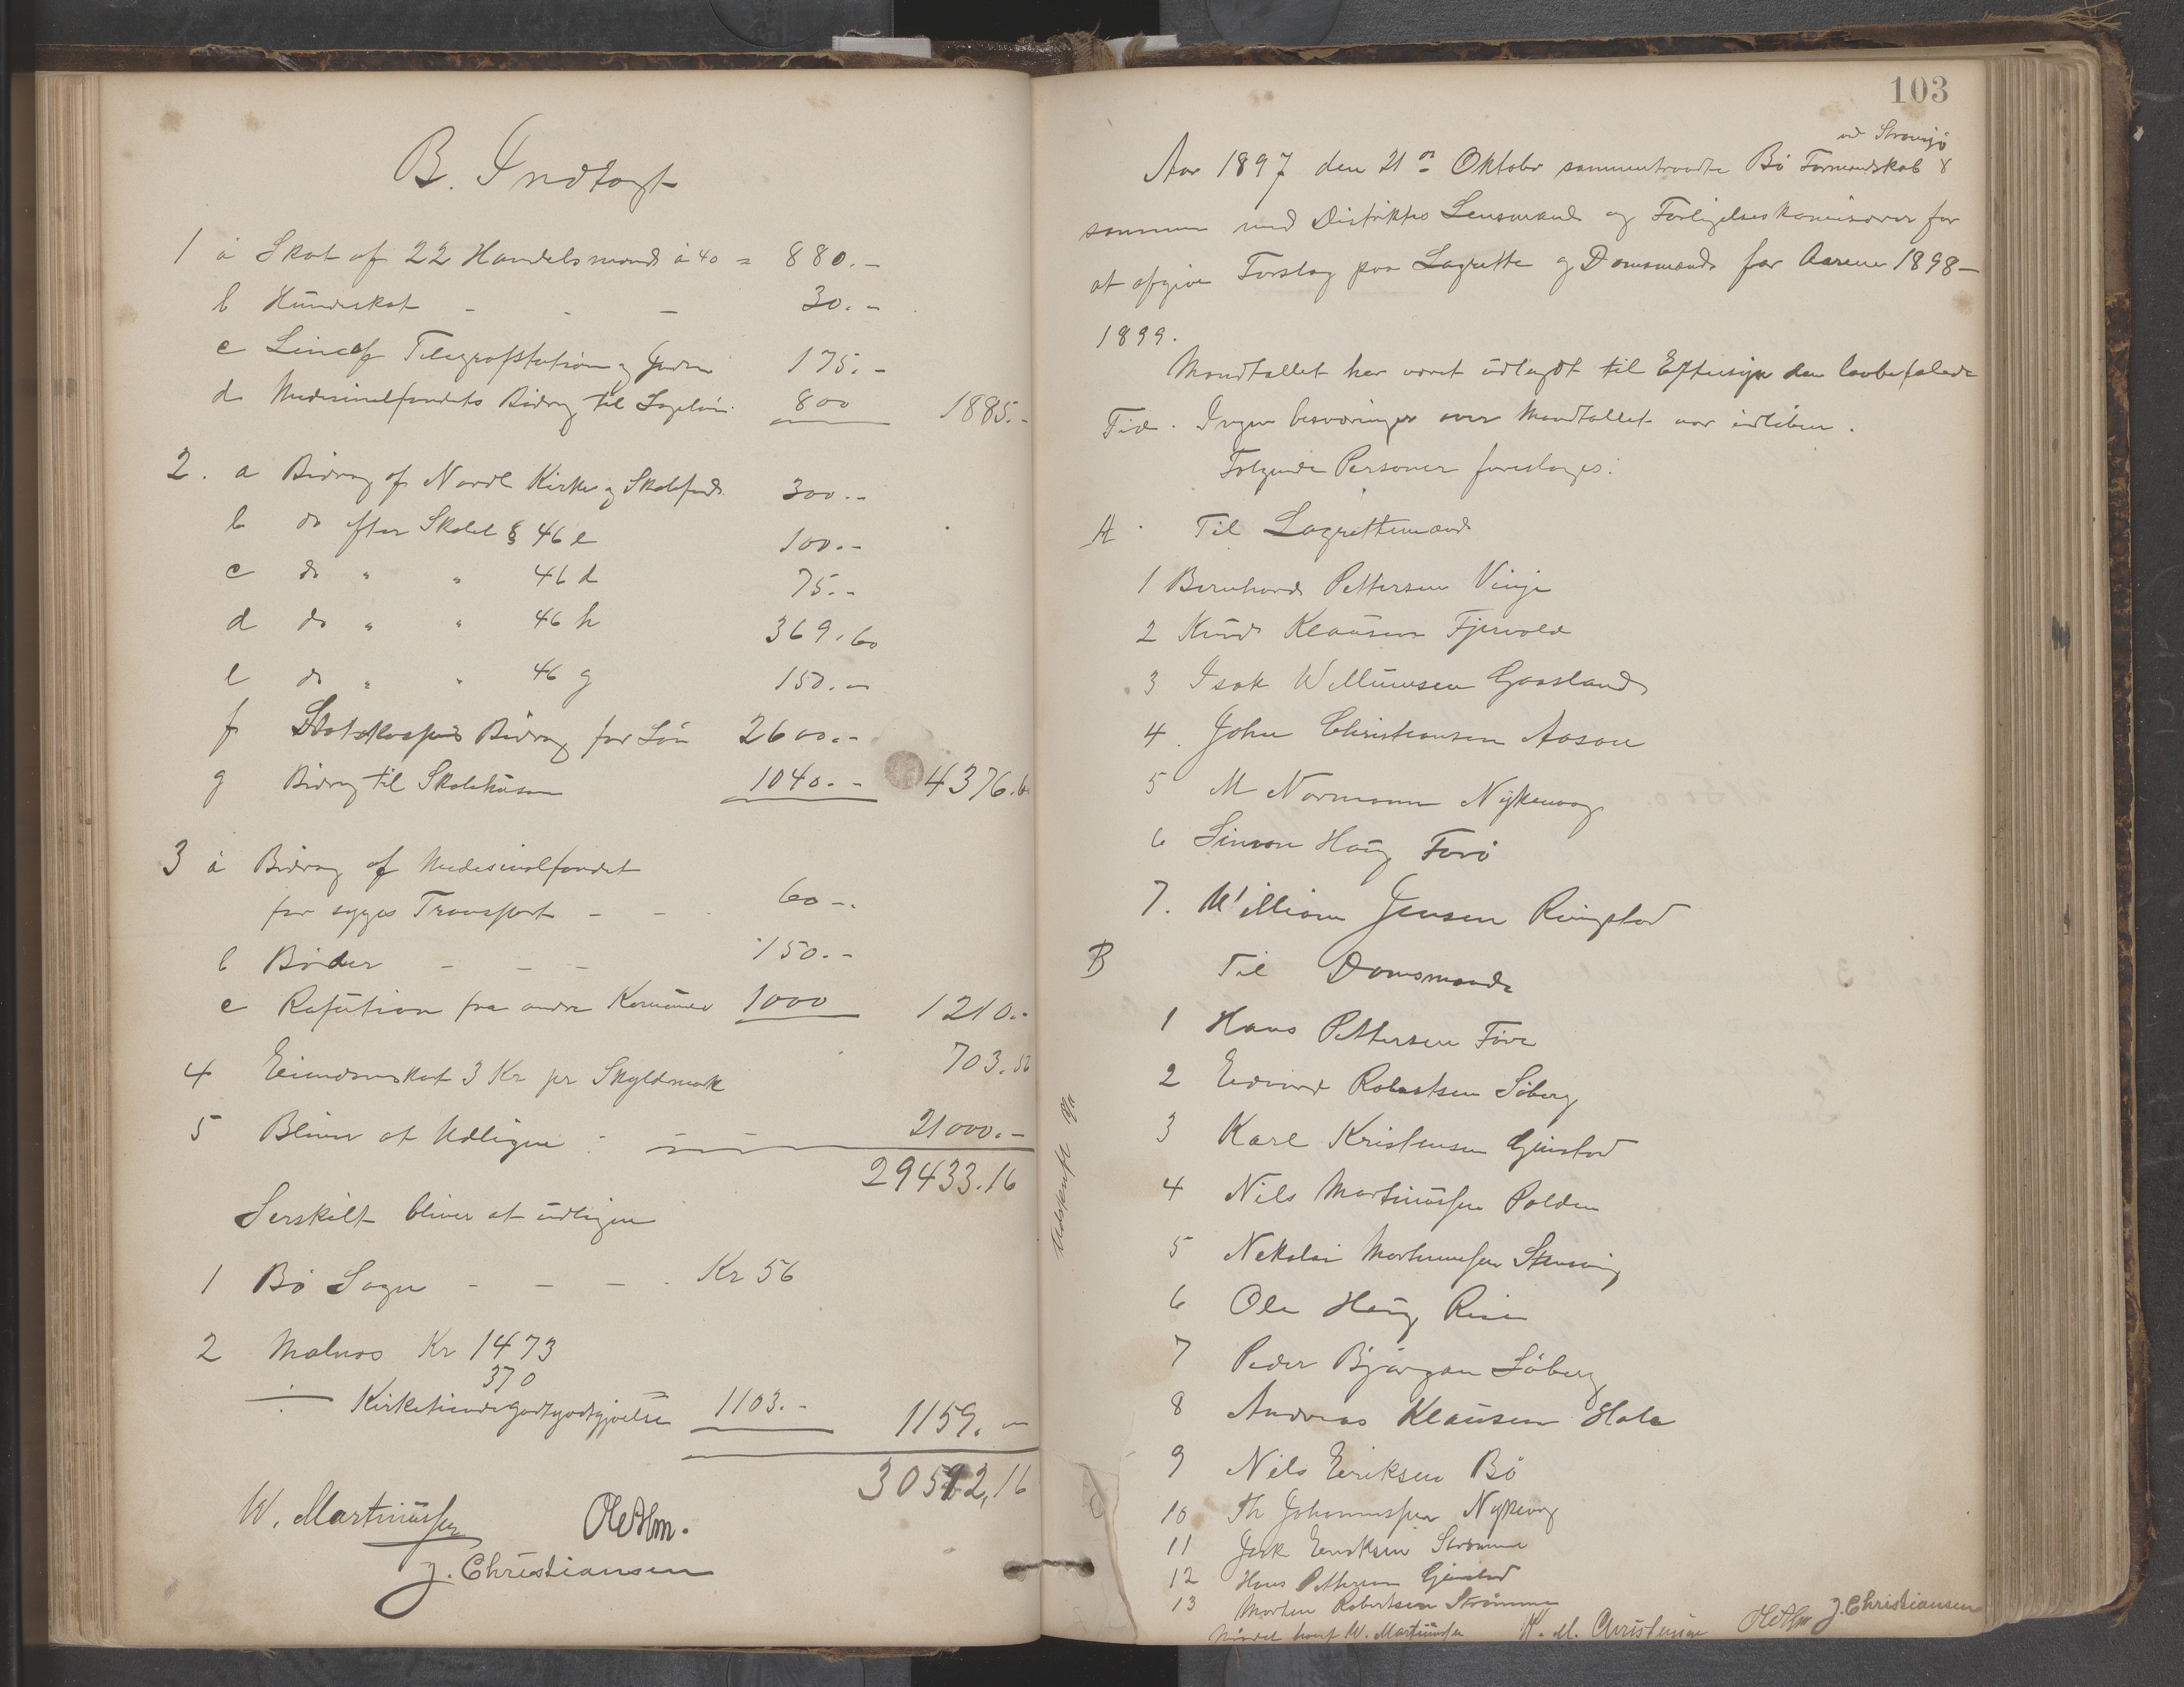 B. Indtægt
1 a Skat af 22 Handelsmænd à 40 = 880.-
b Hundeskat - - - 30.-
c Leie af Telegrafstation og Jorden 175.-
d Medisinalfondets Bidrag til Lægeløn 800 1885.-
2. a Bidrag af Nordl Kirke og Skolefond 300.-
b do efter Skolel § 46 e 100.-
c do " " 46 d 75.-
d do " " 46 h 369.60
e do " " 46 g 150.-
f Statskassens Bidrag for Løn 2600.-
g Bidrag til Skolehusene 1040.- 4376.6
3 a Bidrag af Medesinalfondet
for syges Transport - - 60-.
b Bøder - - - 150.-
c Refusion fra andre Komuner 1000 1210.-
4 Eiendomskat 3 Kr pr Skyldmark 703.56
5 Bliver at Udligne : 21000.-
29433.16
Serskilt bliver at udligne
1 Bø Sogn - - - Kr 56
2 Malnes Kr 1473
370
÷ Kirketiendegodtgjørelse 1103.- 1159.-
30592,16
W. Martinussen OleAlm.
J. Christiansen
103
ved Straumsjø
Aar 1897 den 21de Oktober sammentraadte Bø Formandskab
sammen med Distriktets Lensmand og Forligelseskomisærer for
at afgive Forslag paa Lagrette og Domsmænd for Aarene 1898-
1899.
Mandtallet har været udlagdt til Eftersyn den lovbefalede
Tid. Ingen besværinger over Mandtallet var indløben.
Følgende Personer foreslages:
A. Til Lagrettemænd
1 Bernhard Pettersen Vinje
2 Knud Klausen Fjervold
3 Isak Willumsen Gaasland
4. John Christiansen Aasan
5 M Normann Nykvaag
6 Simon Haug Førø
7. William Jensen Ringstad
B Til Domsmænd
1 Hans Pettersen Føre
2 Edvard Robertsen Søberg
3 Karl Kristensen Gjinstad
4 Nils Martinussen Polden
5 Nekolai Mortensen
6 Ole Haug Risen
7 Peder Bjørgan Søberg
8 Andreas Klausen Hola
9 Nils Eriksen Bø
10 Th Johannessen Nykvaag
11 Jakk Eriksen Strømme
12 Hans Pettersen Gjinstad
13 Morten Robertsen Strømme
Udskrift
W. Martinussen K. M. Christensen OleAlm J. Christiansen